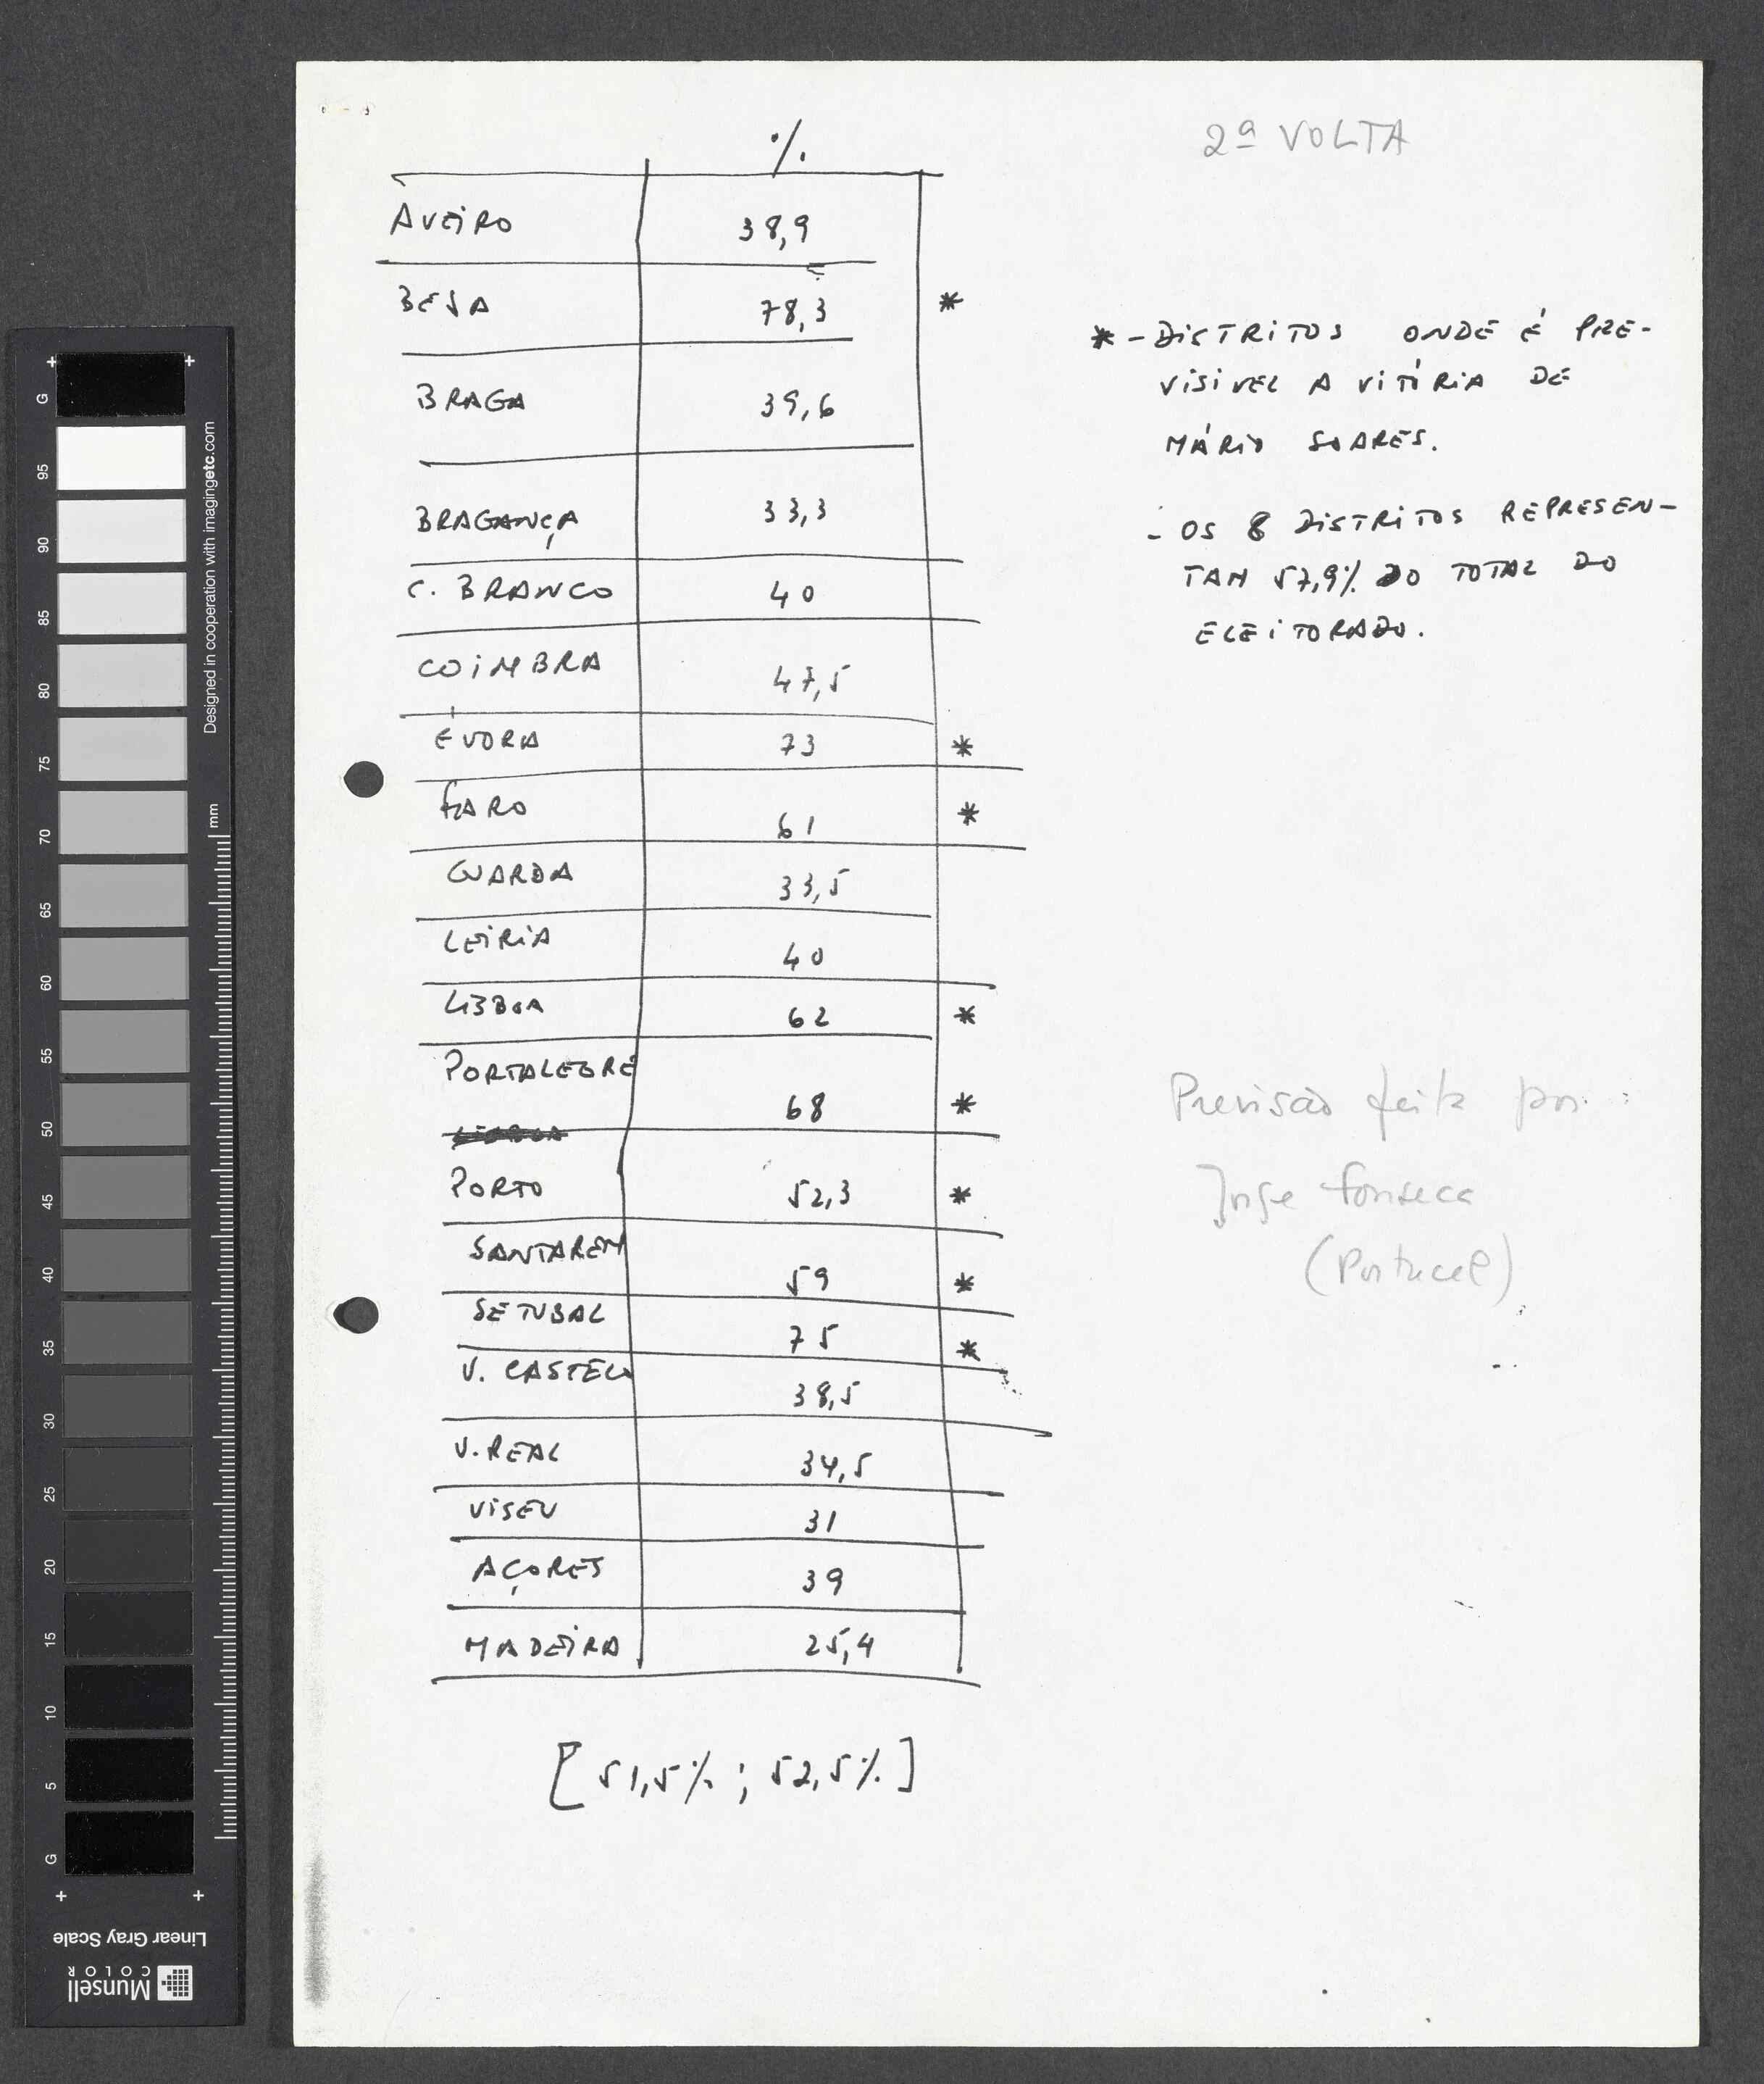 2ª VOLTA
%
AVEIRO 38,9
BEJA 78,3 *
BRAGA 39,6
BRAGANÇA 33,3
C. BRANCO 40
COIMBRA 47,5
ÉVORA 73 *
FARO 61 *
GUARDA 33,5
LEIRIA 40
LISBOA 62 *
PORTALEGRE 68 *
PORTO 52,3 *
SANTAREM 59 *
SETUBAL 75 *
V. CASTELO 38,5
V. REAL 34,5
VISEU 31
AÇORES 39
MADEIRA 25,4
[51,5% ; 52,5%]
* - DISTRITOS ONDE É PRE-
VISIVEL A VITÓRIA DE
MÁRIO SOARES.
- OS 8 DISTRITOS REPRESEN-
TAM 57,9% DO TOTAL DO
ELEITORADO.
Previsão feita por :
Jorge Fonseca
(Portucel)
G
95
90
85
80
75
70
65
60
55
50
45
40
35
30
25
20
15
10
5
G
mm
Designed in cooperation with imagingetc.com
Linear Gray Scale
Munsell
COLOR